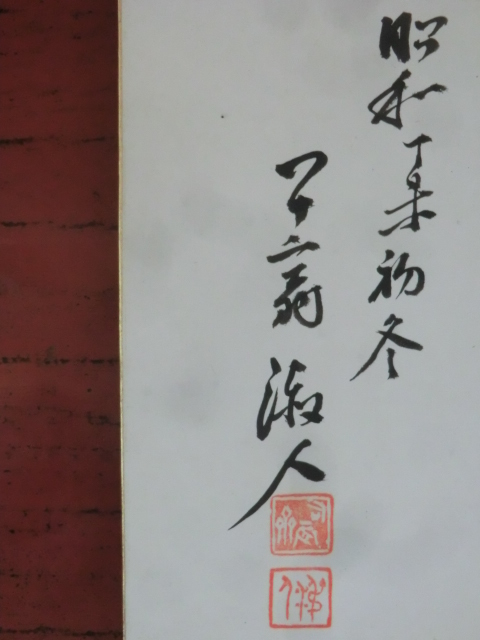 昭和丁未初冬
八十二翁 淑人